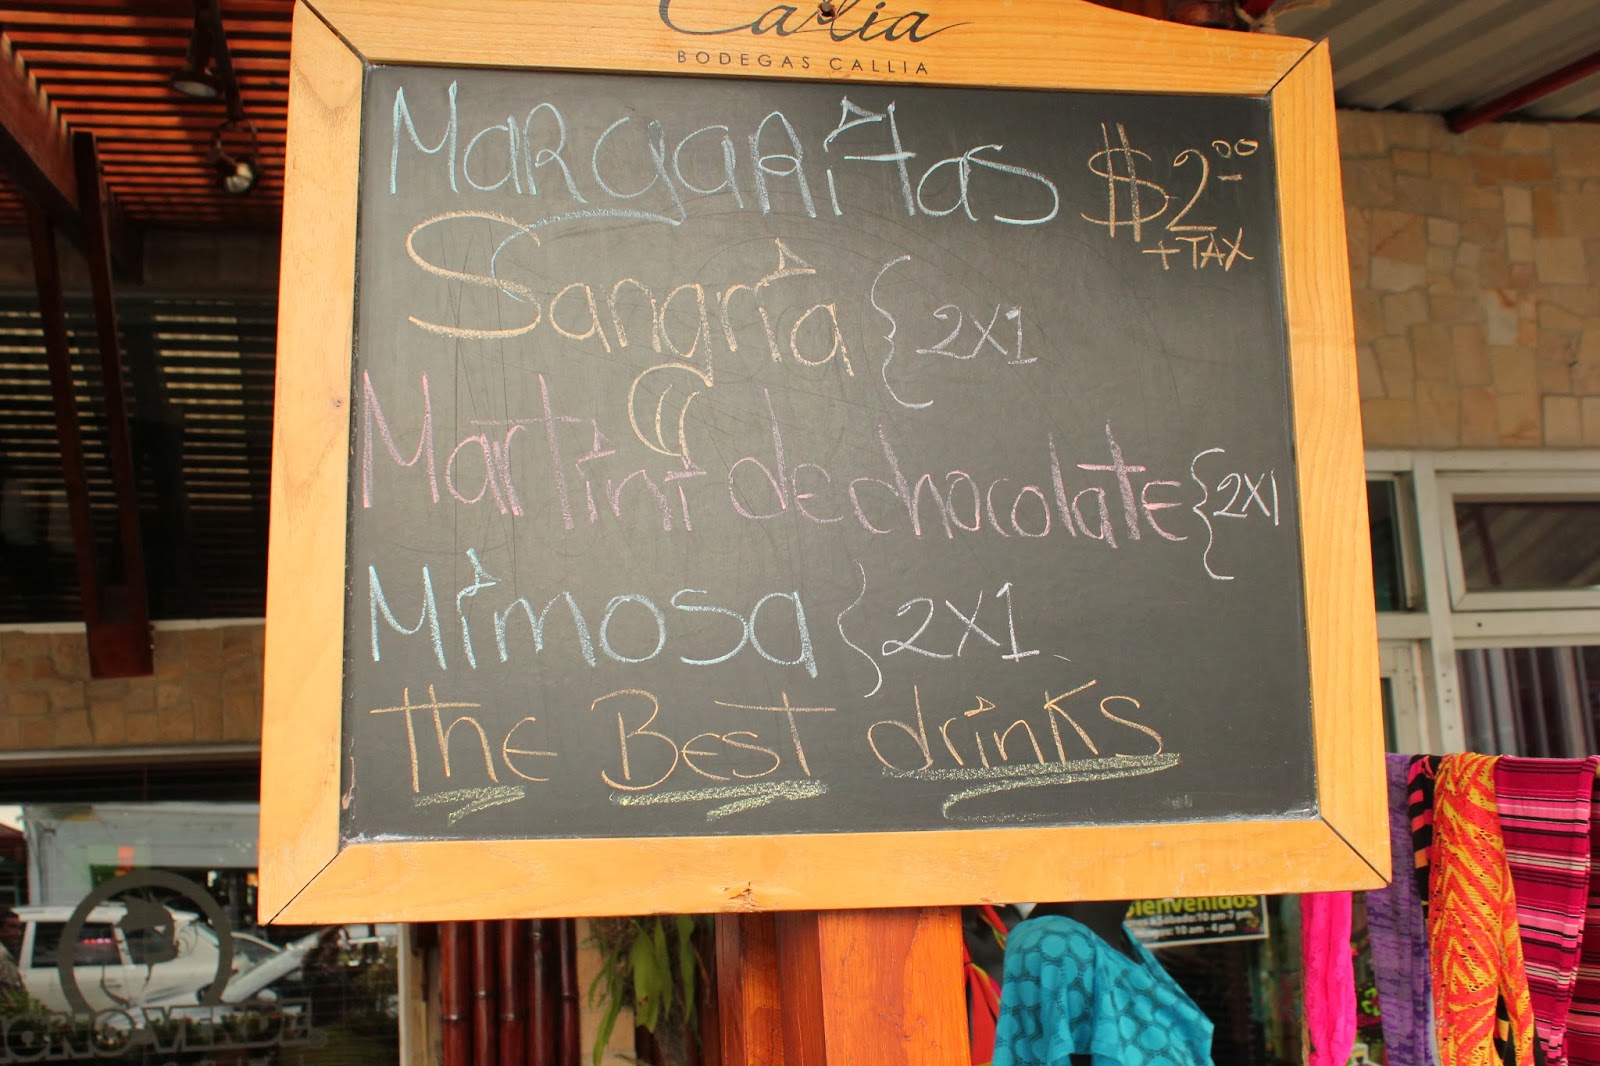 Callia
BODEGAS CALLIA
MargaRitas $2.00
+TAX
Sangria { 2X1
Martini de chocolate { 2X1
Mimosa { 2X1
the Best drinks
Bienvenidos
10 am-7 pm
10 am - 4 pm